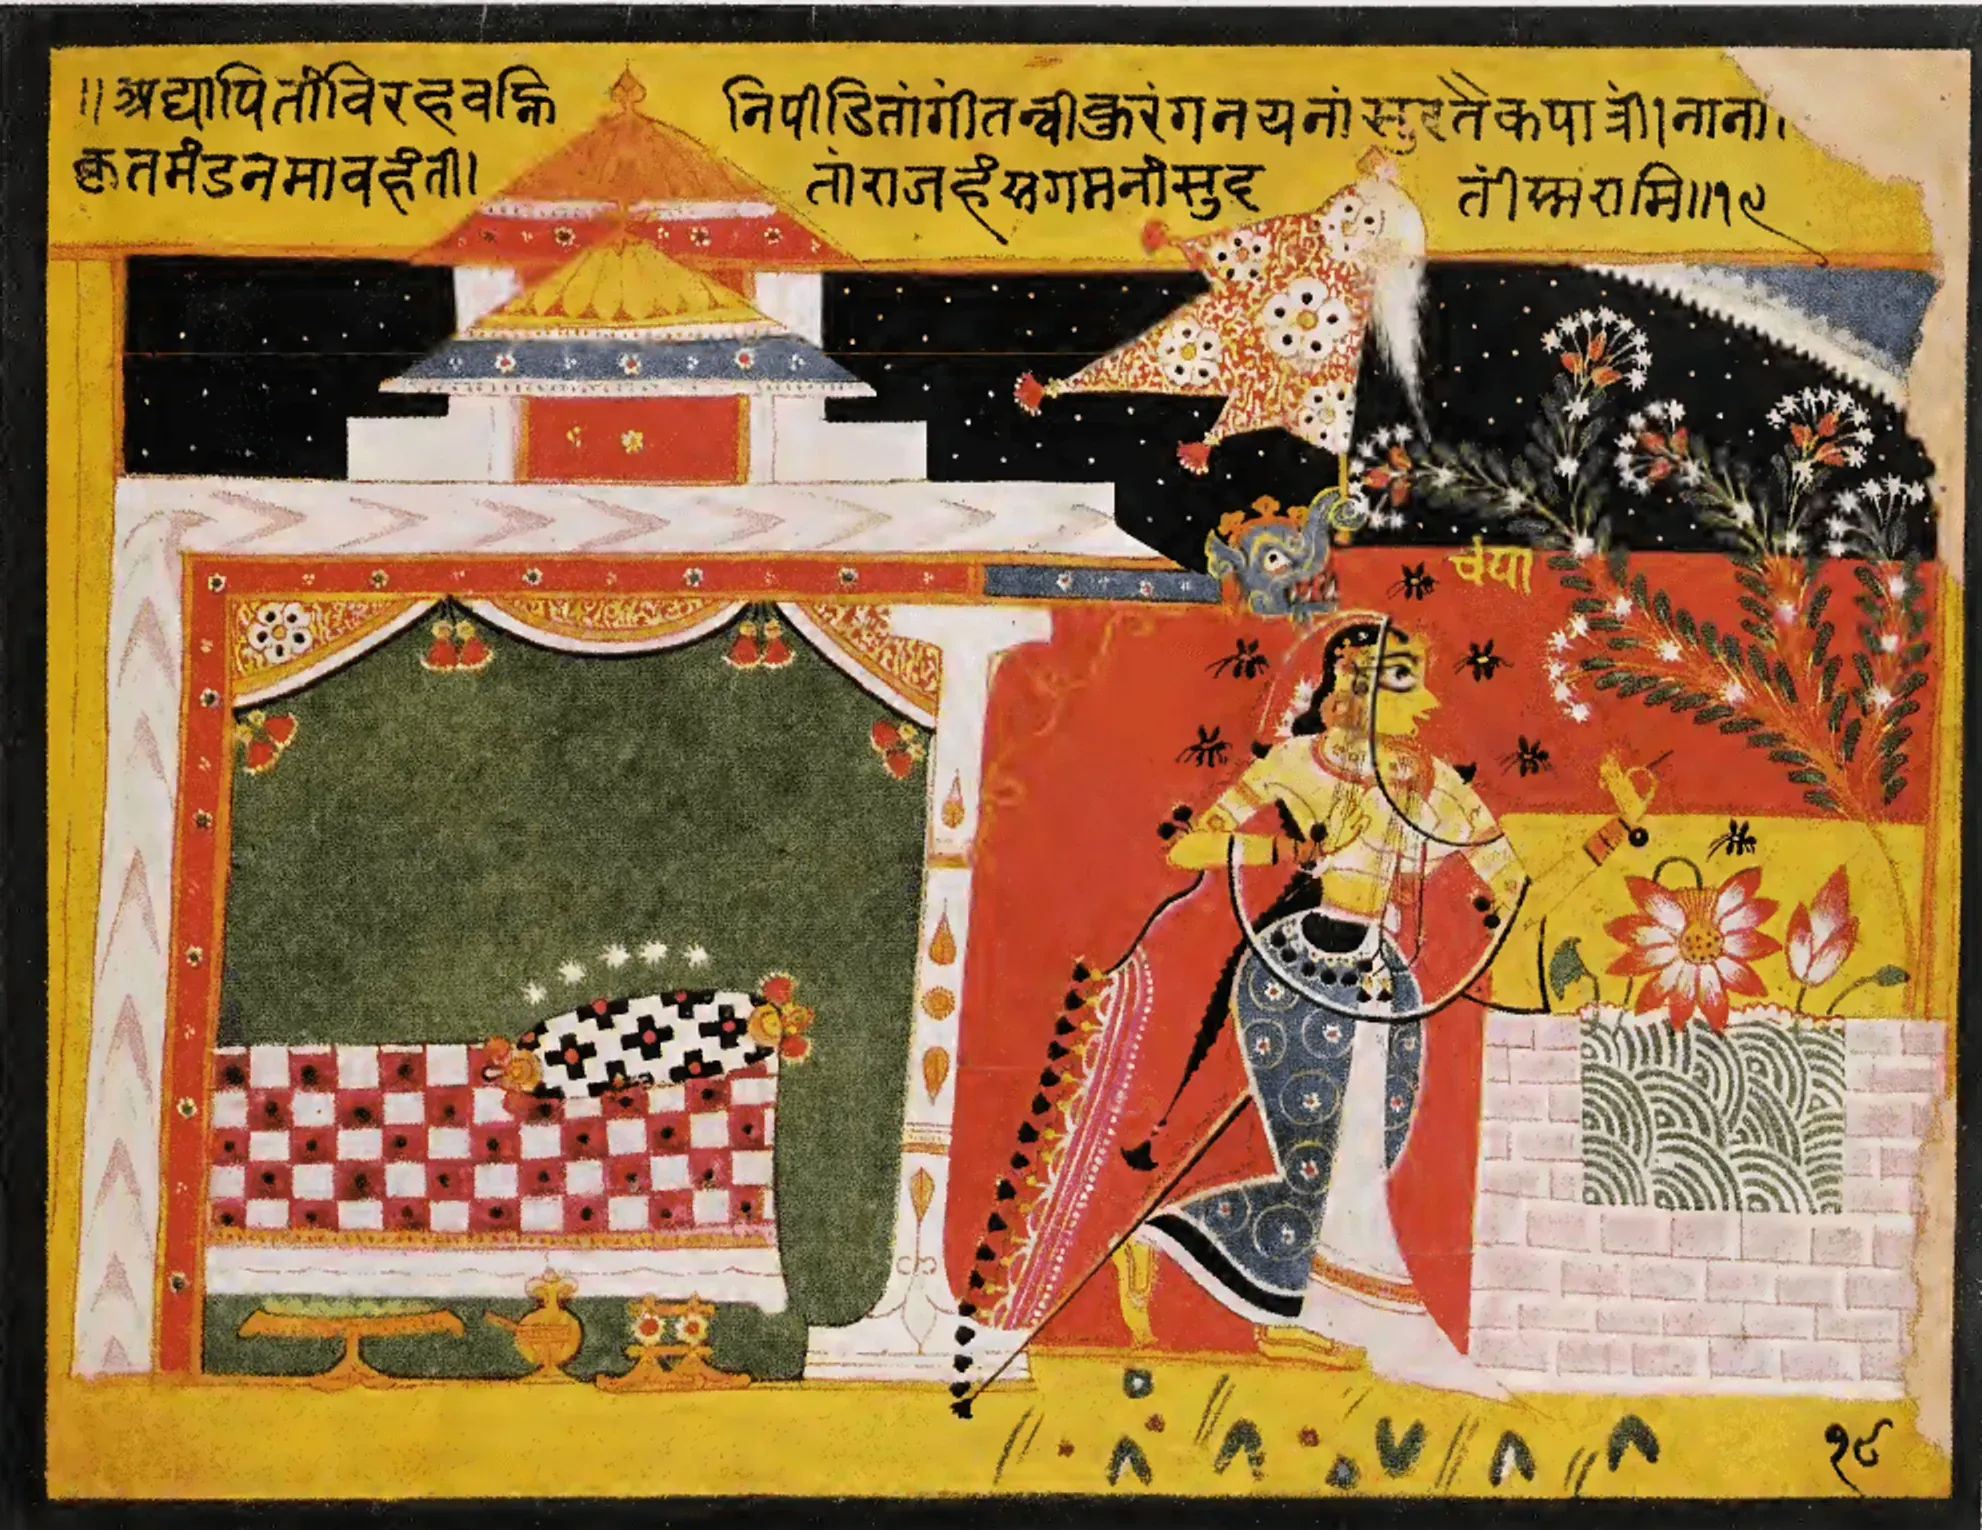 ॥अद्यापितांविरहवह्निनिपीडितांगीतन्वीकुरंगनयनांसुरतैकपात्रीं।नाना।
कृतमंडनमावहंतीं।तांराजहंसगमनांसुदतींस्मरामि॥१९
चंपा
१८